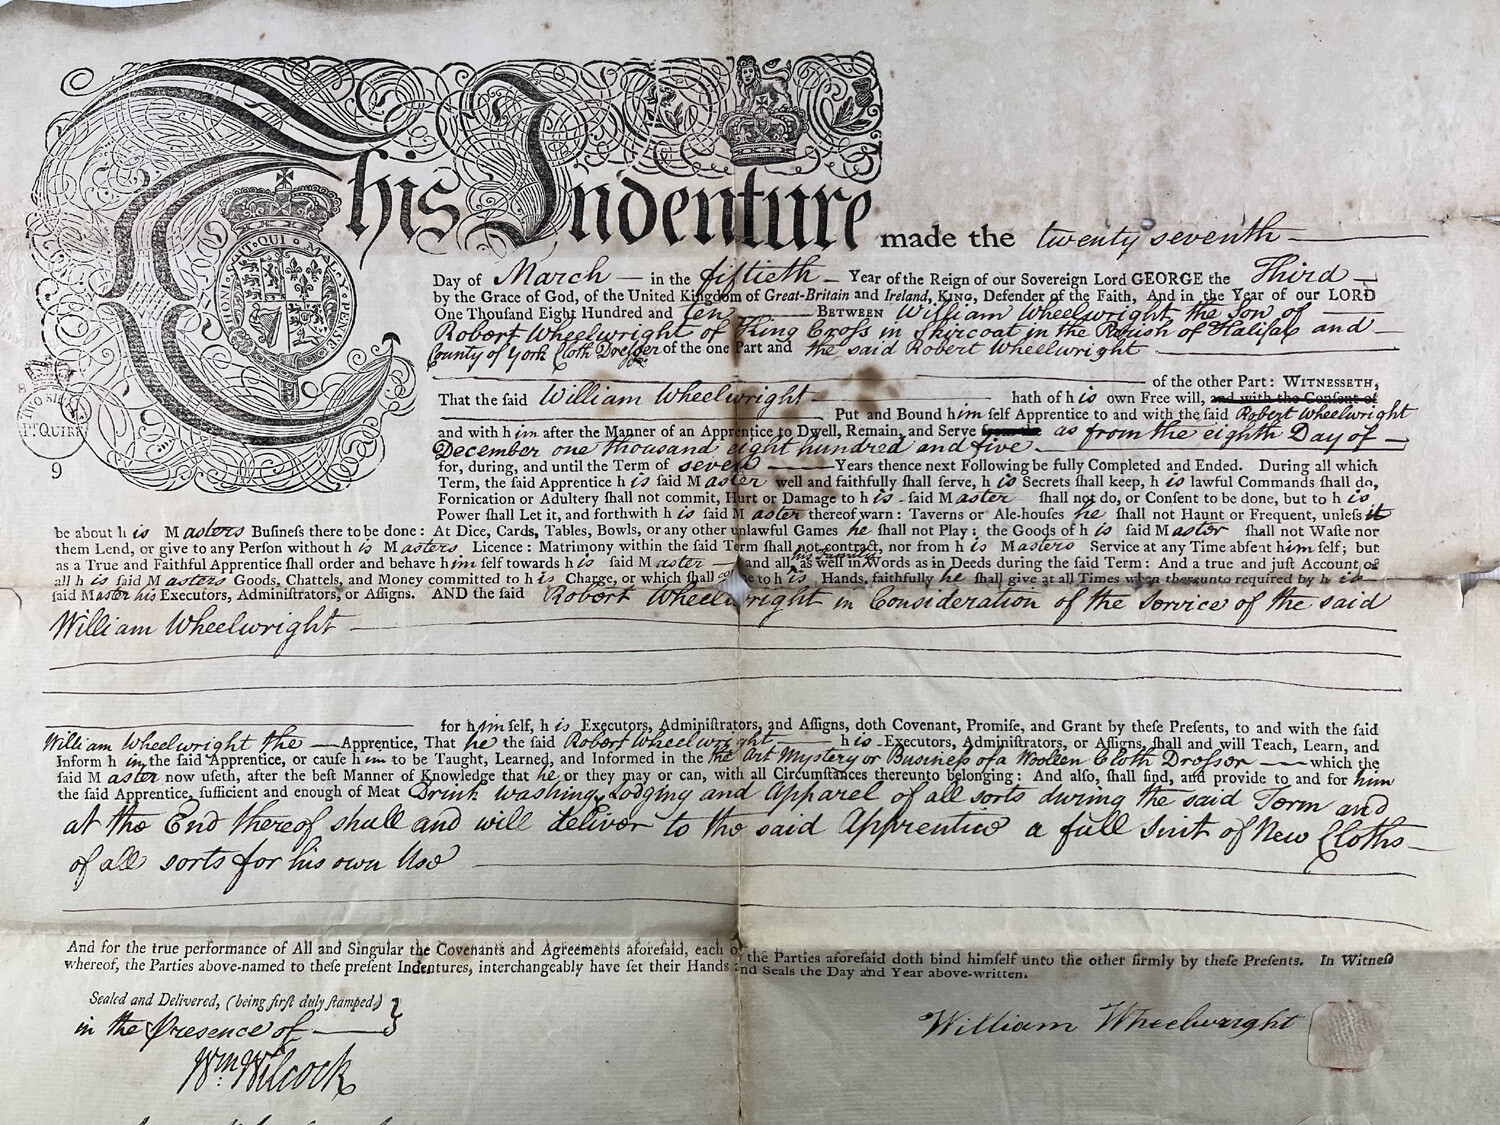 This Indenture made the twenty seventh
HONI·SOIT·QUI·MAL·Y·PENSE
Day of March in the fiftieth Year of the Reign of our Sovereign Lord GEORGE the Third
by the Grace of God, of the United Kingdom of Great-Britain and Ireland, KING, Defender of the Faith, And in the Year of our LORD
One Thousand Eight Hundred and ten BETWEEN William Wheelwright the Son of
Robert Wheelwright of King Cross in Skircoat in the Parish of Halifax and
County of York Cloth Dresser of the one Part and the said Robert Wheelwright
of the other Part: WITNESSETH,
That the said William Wheelwright hath of his own Free will, and with the Consent of
Put and Bound himself Apprentice to and with the said Robert Wheelwright
and with him after the Manner of an Apprentice to Dwell, Remain, and Serve as from the eighth Day of
December one thousand eight hundred and five
for, during, and until the Term of seven Years thence next Following be fully Completed and Ended. During all which
Term, the said Apprentice his said Master well and faithfully shall serve, his Secrets shall keep, his lawful Commands shall do,
Fornication or Adultery shall not commit, Hurt or Damage to his said Master shall not do, or Consent to be done, but to his
Power shall Let it, and forthwith his said Master thereof warn: Taverns or Ale-houses he shall not Haunt or Frequent, unless it
be about his Masters Business there to be done: At Dice, Cards, Tables, Bowls, or any other unlawful Games he shall not Play: the Goods of his said Master shall not Waste nor
them Lend, or give to any Person without his Masters Licence: Matrimony within the said Term shall not contract, nor from his Masters Service at any Time absent himself; but
as a True and Faithful Apprentice shall order and behave himself towards his said Master and all his Family as well in Words as in Deeds during the said Term: And a true and just Account of
all his said Masters Goods, Chattels, and Money committed to his Charge, or which shall come to his Hands, faithfully he shall give at all Times when thereunto required by his
said Master his Executors, Administrators, or Assigns. AND the said Robert Wheelwright in Consideration of the Service of the said
William Wheelwright
for himself, his Executors, Administrators, and Assigns, doth Covenant, Promise, and Grant by these Presents, to and with the said
William Wheelwright the Apprentice, That he the said Robert Wheelwright his Executors, Administrators, or Assigns, shall and will Teach, Learn, and
Inform him the said Apprentice, or cause him to be Taught, Learned, and Informed in the the Art Mystery or Business of a Woollen Cloth Dresser which the
said Master now useth, after the best Manner of Knowledge that he or they may or can, with all Circumstances thereunto belonging: And also, shall find, and provide to and for him
the said Apprentice, sufficient and enough of Meat Drink washing Lodging and Apparel of all sorts during the said Term and
at the End thereof shall and will deliver to the said Apprentice a full Suit of New Cloths
of all sorts for his own Use
And for the true performance of All and Singular the Covenants and Agreements aforesaid, each of the Parties aforesaid doth bind himself unto the other firmly by these Presents. In Witness
whereof, the Parties above-named to these present Indentures, interchangeably have set their Hands and Seals the Day and Year above-written.
Sealed and Delivered, (being first duly stamped,)
in the Presence of
Wm. Wilcock
William Wheelwright
9